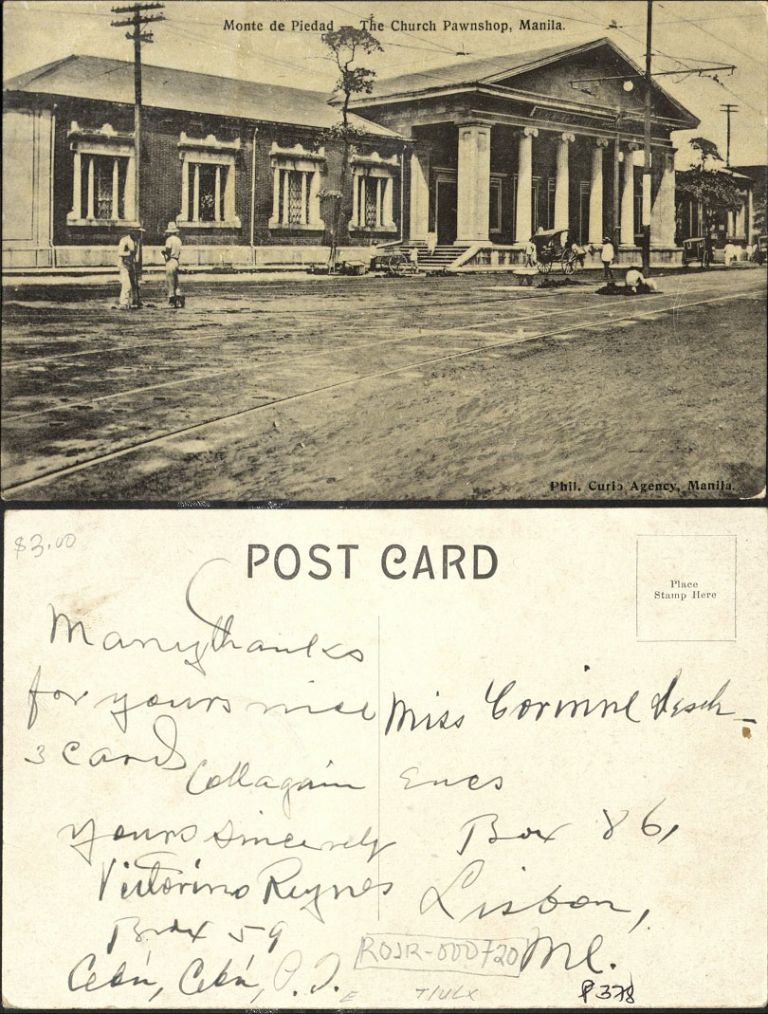 Monte de Piedad - The Church Pawnshop, Manila.
Phil. Curio Agency, Manila.
$3.00
POST CARD
Place
Stamp Here
Many thanks
for yours nice
3 cards
Call again
yours sincerely
Victorino Reynes
Box 59
Cebú, Cebú, P.I.
Miss Corinne Desch-
enes
Box 86,
Lisbon,
Me.
ROJR-000720
P378